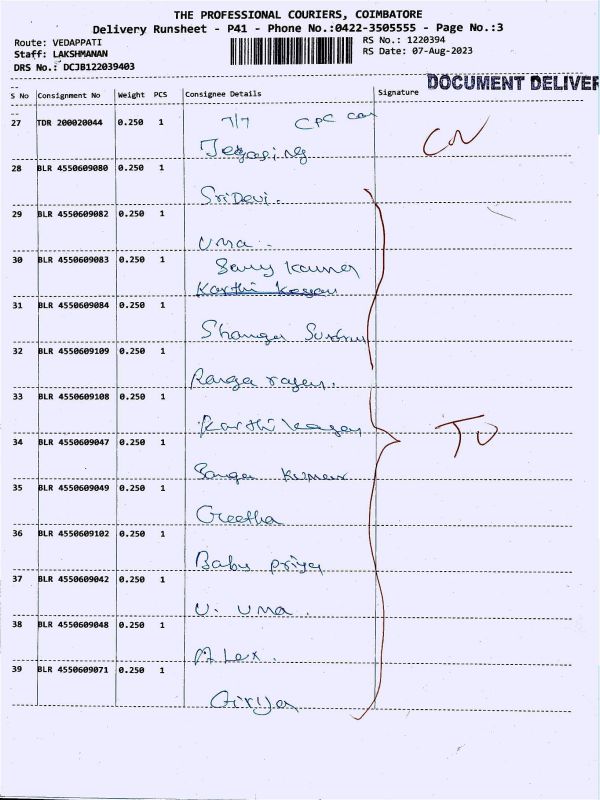 THE PROFESSIONAL COURIERS, COIMBATORE
Delivery Runsheet - P41 - Phone No.:0422-3505555 - Page No.:3
Route: VEDAPPATI
RS No.: 1220394
Staff: LAKSHMANAN
RS Date: 07-Aug-2023
DRS No.: DCJB122039403
DOCUMENT DELIVER
S No Consignment No Weight PCS Consignee Details Signature
27 TDR 200020044 0.250 1 7/7 CPC
28 BLR 4550609080 0.250 1
SriDevi.
29 BLR 4550609082 0.250 1
Uma.
30 BLR 4550609083 0.250 1
Karthi Keyan
31 BLR 4550609084 0.250 1
32 BLR 4550609109 0.250 1
Ranga rajan.
33 BLR 4550609108 0.250 1
Karthi keyan
34 BLR 4550609047 0.250 1
TO
Kumar
35 BLR 4550609049 0.250 1
Geetha
36 BLR 4550609102 0.250 1
Babu priya
37 BLR 4550609042 0.250 1
U. Uma.
38 BLR 4550609048 0.250 1
Alex.
39 BLR 4550609071 0.250 1
Girija